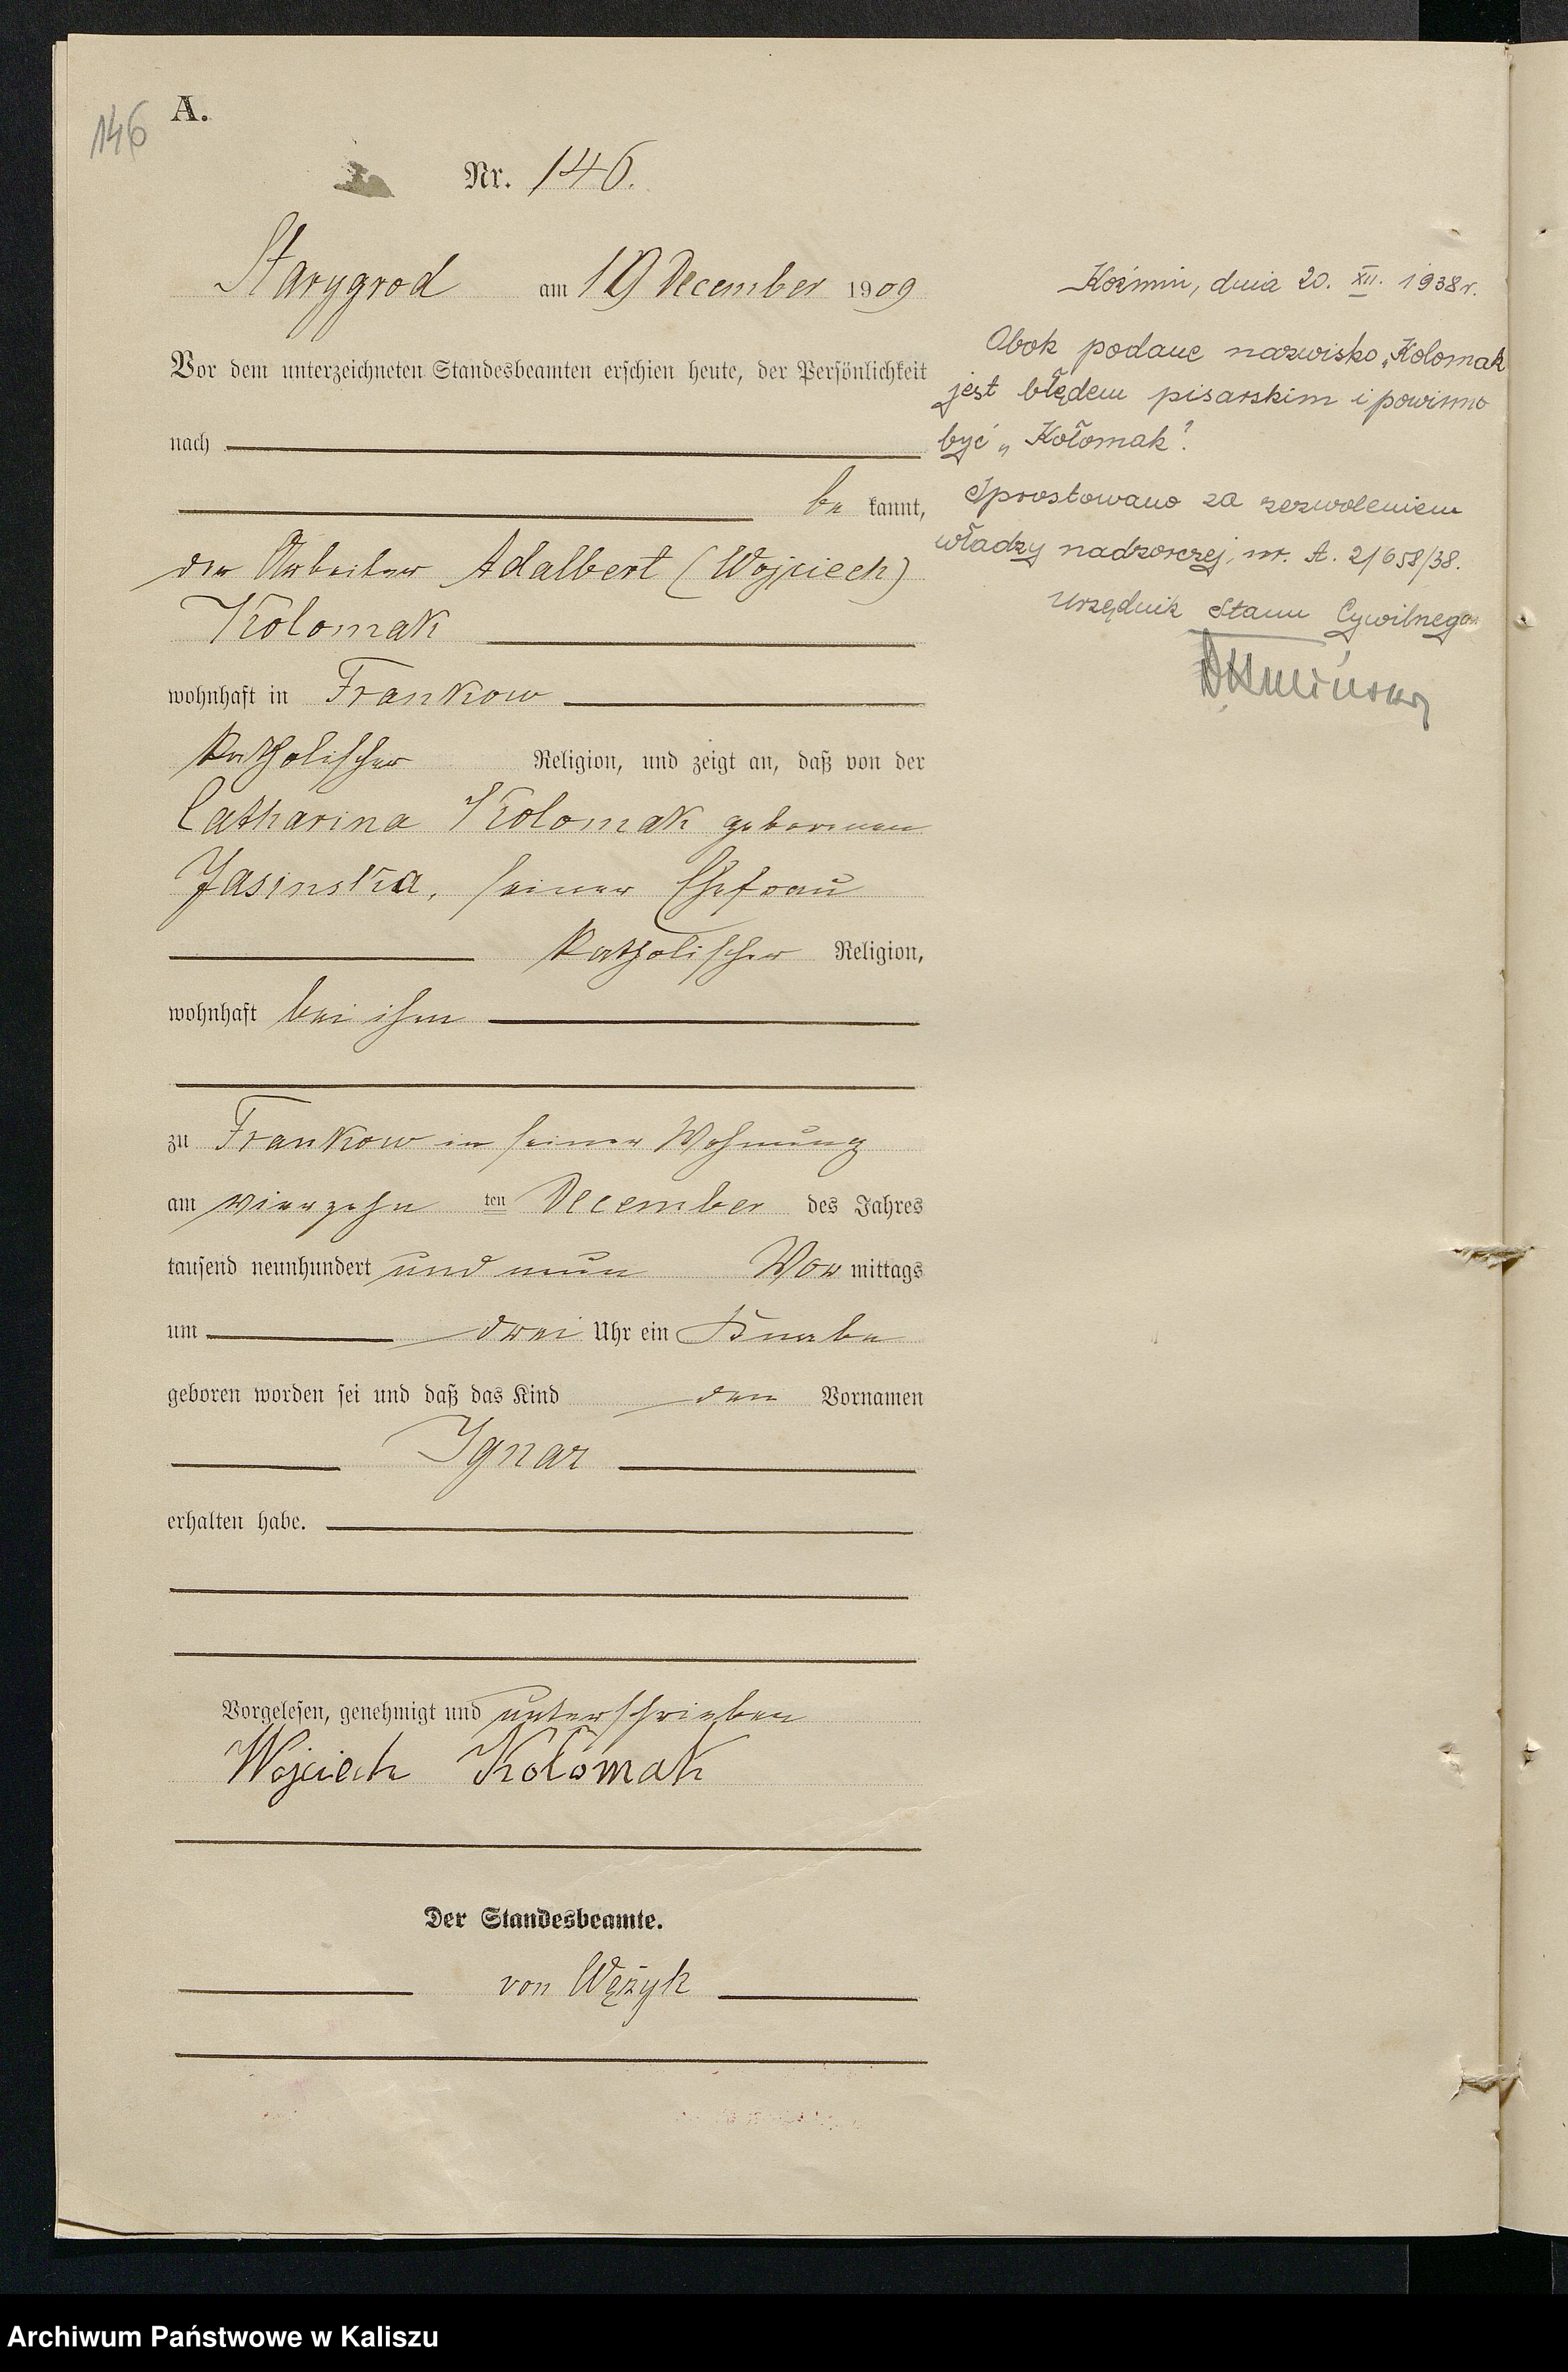 146
A.
Nr. 146.
Starygrod am 19 December 1909
Vor dem unterzeichneten Standesbeamten erschien heute, der Persönlichkeit
nach
be kannt,
der Arbeiter Adalbert (Wojciech)
Kolomak
wohnhaft in Frankow
katholischer Religion, und zeigt an, daß von der
Catharina Kolomak geborenen
Jasinska, seiner Ehefrau
katholischer Religion,
wohnhaft bei ihm
zu Frankow in seiner Wohnung
am vierzehn ten December des Jahres
tausend neunhundert und neun Vor mittags
um drei Uhr ein Knabe
geboren worden sei und daß das Kind den Vornamen
Ignaz
erhalten habe.
Vorgelesen, genehmigt und unterschrieben
Wojciech Kołomak
Der Standesbeamte.
von Wężyk
Koźmin, dnia 20. XII. 1938 r.
Obok podane nazwisko „Kolomak
jest błędem pisarskim i powinno
być „Kołomak".
Sprostowano za zezwoleniem
władzy nadzorczej, nr. A. 2/658/38.
Urzędnik Stanu Cywilnego
Archiwum Państwowe w Kaliszu